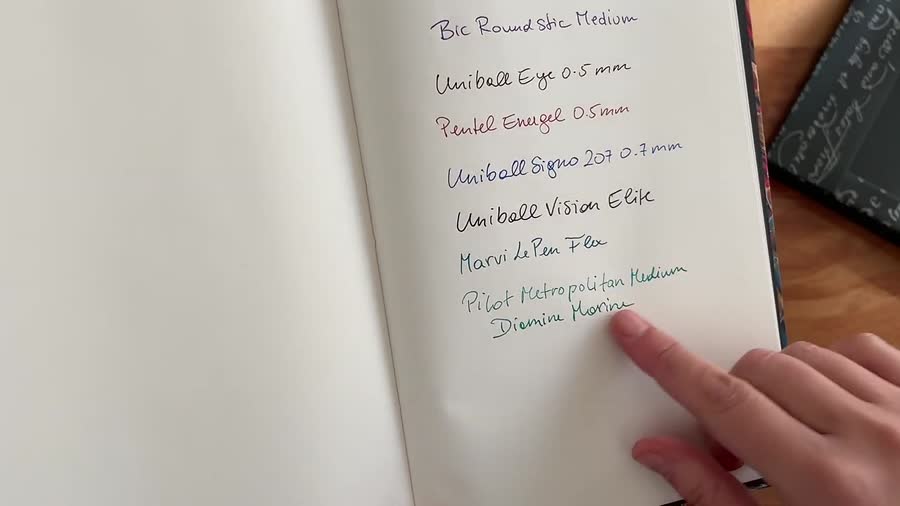 Bic Roundstic Medium
Uniball Eye 0.5mm
Pentel Energel 0.5mm
Uniball Signo 207 0.7mm
Uniball Vision Elite
Marvi Le Pen Flex
Pilot Metropolitan Medium
Diamine Marine